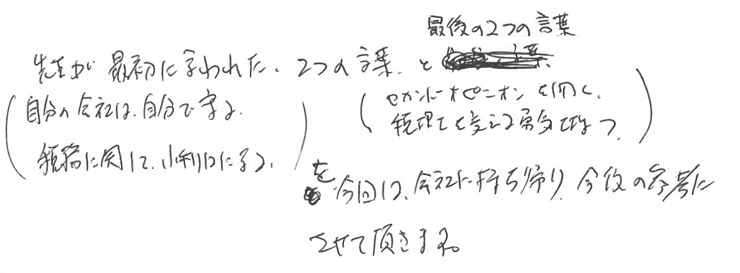 最後の2つの言葉
先生が最初に言われた、2つの言葉、と
(自分の会社は、自分で守る、
税務に関して、小利口になる、)
(セカンドオピニオンを聞く、
税理士を変える勇気を持つ、)
を今回は、会社に持ち帰り、今後の参考に
させて頂きます。